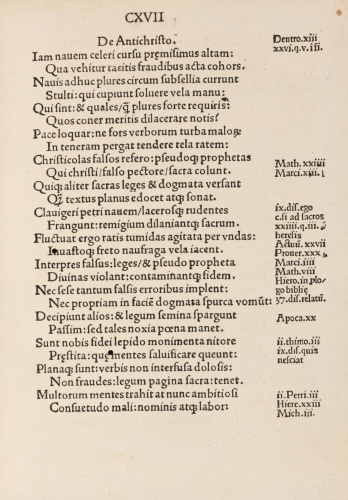 CXVII
De Antichristo.
Iam nauem celeri cursu p̃misimus altam:
Qua vehitur tacitis fraudibus acta cohors.
Nauis adhuc plures circum subsellia currunt
Stulti: qui cupiunt soluere vela manu:
Qui sint: & quales/ q̃ plures forte requiris:
Quos coner meritis dilacerare notis?
Pace loquar: ne fors verborum turba maloꝝ
In teneram pergat tendere tela ratem:
Christicolas falsos refero: pseudoq; prophetas
Qui christi/ falso pectore/ sacra colunt.
Quiq; aliter sacras leges & dogmata versant
Q̃ textus planus edocet atq; sonat.
Clauigeri petri nauem/ lacerosq; rudentes
Frangunt: remigium dilaniantq; sacrum.
Fluctuat ergo ratis tumidas agitata per vndas:
Inuastoq; freto naufraga vela iacent.
Interpres falsus: leges/ & pseudo propheta
Diuinas violant: contaminantq; fidem.
Nec sese tantum falsis erroribus implent:
Nec propriam in faciẽ dogmata spurca vomũt:
Decipiunt alios: & legum semina spargunt
Passim: sed tales noxia pœna manet.
Sunt nobis fidei lepido monimenta nitore
Prestita: que mentes saluificare queunt:
Planaq; sunt: verbis non interfusa dolosis:
Non fraudes: legum pagina sacra: tenet.
Multorum mentes trahit at nunc ambitiosi
Consuetudo mali: nominis atq; labor:
Dentro. xiii
xxvi. q. v. i si.
Math. xxiiii
Marci. xiii.
ix. dis. ego
c. si ad sacros
xxiiii. q. iii.
heresis
Actuũ. xxvii
Prouer. xxx
Marci. iiii
Math. viii
Hiero. in plo
go biblie
37. dis. relatũ.
Apoca. xx
ii. thimo. iii
ix. dis. quis
nesciat
ii. Petri. iii
Hiere. xxiii
Mich. iii.